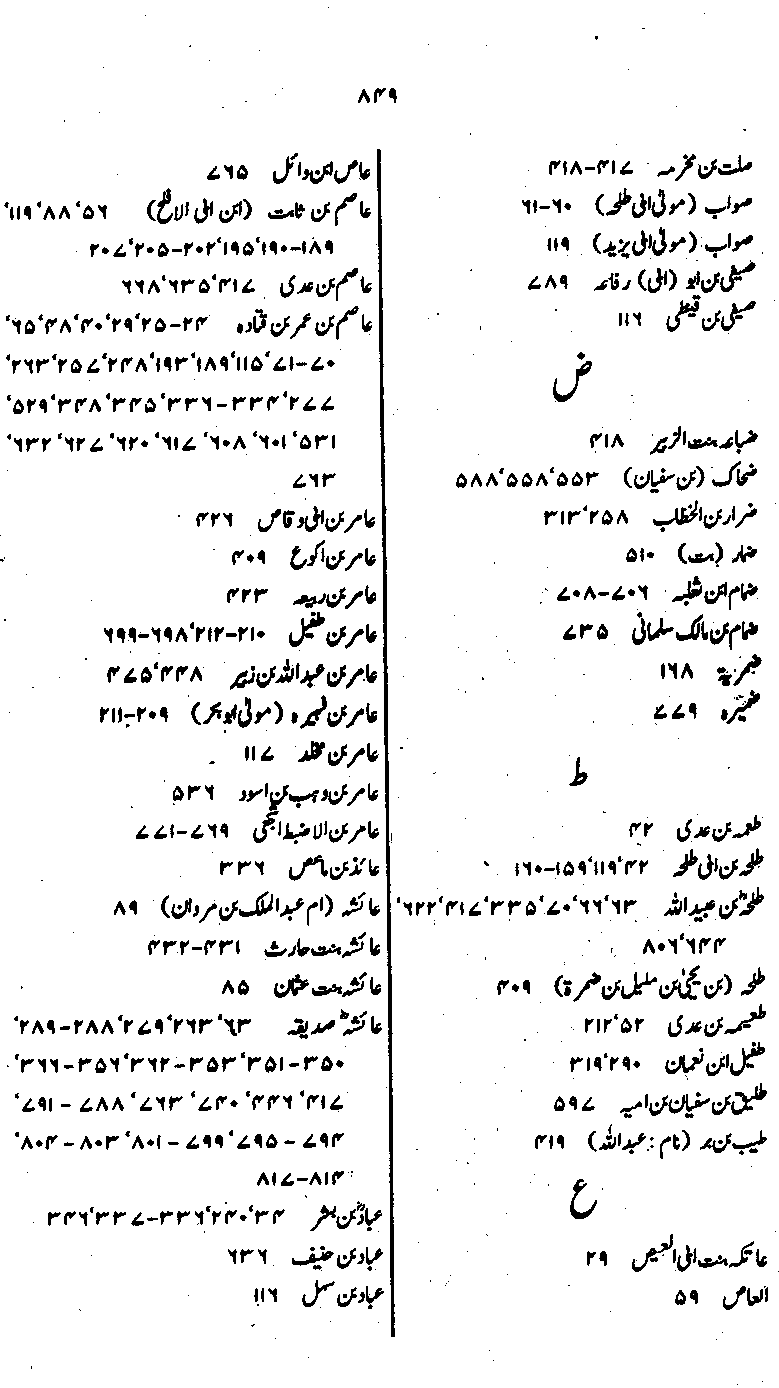 ۸۴۹
صلت بن مخرمہ ۴۱۷-۴۱۸
صواب (مولیٰ ابی طلحہ) ۶۰-۶۱
صواب (مولیٰ ابی یزید) ۱۱۹
صیفی بن ابو (ابی) رفاعہ ۷۸۹
صیفی بن قیظی ۱۱۶
ض
ضباعہ بنت الزبیر ۴۱۸
ضحاک (بن سفیان) ۵۵۳‘۵۵۸‘۵۸۸
ضرار بن الخطاب ۲۵۸‘۳۱۳
ضمار (بت) ۵۱۰
ضمام ابن ثعلبہ ۷۰۶-۷۰۸
ضمام بن مالک سلمانی ۷۳۵
ضمریہ ۱۶۸
ضمیرہ ۷۷۹
ط
طعمہ بن عدی ۴۲
طلحہ بن ابی طلحہ ۴۲‘۱۱۹‘۱۵۹-۱۶۰
طلحہؓ بن عبید اللہ ۶۳‘۶۶‘۷۰‘۳۳۵‘۴۱۷‘۶۲۲‘
۶۴۴‘۸۰۶
طلحہ (بن یحییٰ بن ملیل بن ضمرۃ) ۴۰۹
طعیمہ بن عدی ۵۲‘۲۱۲
طفیل ابن نعمان ۲۹۰‘۳۱۹
طلیق بن سفیان بن امیہ ۵۹۷
طیب بن بر (نام : عبداللہ) ۴۱۹
ع
عاتکہ بنت ابی العیص ۲۹
العاص ۵۹
عاص ابن وائل ۷۶۵
عاصم بن ثابت (ابن ابی الاقلح) ۵۶‘۸۸‘۱۱۹‘
۱۸۹-۱۹۰‘۱۹۵‘۲۰۲-۲۰۵‘۲۰۷
عاصم بن عدی ۴۱۷‘۶۳۵‘۶۶۸
عاصم بن عمر بن قتادہ ۲۴-۲۵‘۲۹‘۴۰‘۴۸‘۶۵‘
۷۰-۷۱‘۱۱۵‘۱۸۹‘۱۹۳‘۲۴۸‘۲۵۷‘۲۶۳‘
۲۷۷‘۳۳۴-۳۳۶‘۳۴۵‘۳۴۸‘۵۲۹‘
۵۳۱‘۶۰۱‘۶۰۸‘ ۶۱۷‘۶۲۰‘ ۶۲۷‘۶۳۲‘
۷۶۳
عامر بن ابی وقاص ۴۲۶
عامر بن اکوع ۴۰۹
عامر بن ربیعہ ۴۲۳
عامر بن طفیل ۲۱۰-۲۱۲‘۶۹۸-۶۹۹
عامر بن عبداللہ بن زبیر ۴۴۸‘۴۷۵
عامر بن فہیرہ (مولیٰ ابوبکر) ۲۰۹-۲۱۱
عامر بن مخلد ۱۱۷
عامر بن وہب بن اسود ۵۳۶
عامر بن الاضبط اشجعی ۷۶۹-۷۷۱
عائذ بن ماعص ۳۳۶
عائشہ (ام عبدالملک بن مروان) ۸۹
عائشہ بنت حارث ۴۳۱-۴۳۲
عائشہ بنت عثمان ۸۵
عائشہؓ صدیقہ ۶۳‘۲۶۳‘۲۷۹‘۲۸۸-۲۸۹‘
۳۵۰-۳۵۱‘۳۵۳-۳۶۲‘۳۵۶-۳۶۶‘
۴۱۷‘۴۴۶‘۷۴۰‘ ۷۶۳‘ ۷۸۸ - ۷۹۱‘
۷۹۴ - ۷۹۵‘۷۹۹ - ۸۰۱‘ ۸۰۳ - ۸۰۴‘
۸۱۴-۸۱۷
عبادؓ بن بشر ۳۴‘۲۴۰‘۳۳۶-۳۳۷‘۳۴۶
عباد بن حنیف ۶۳۶
عباد بن سہل ۱۱۶